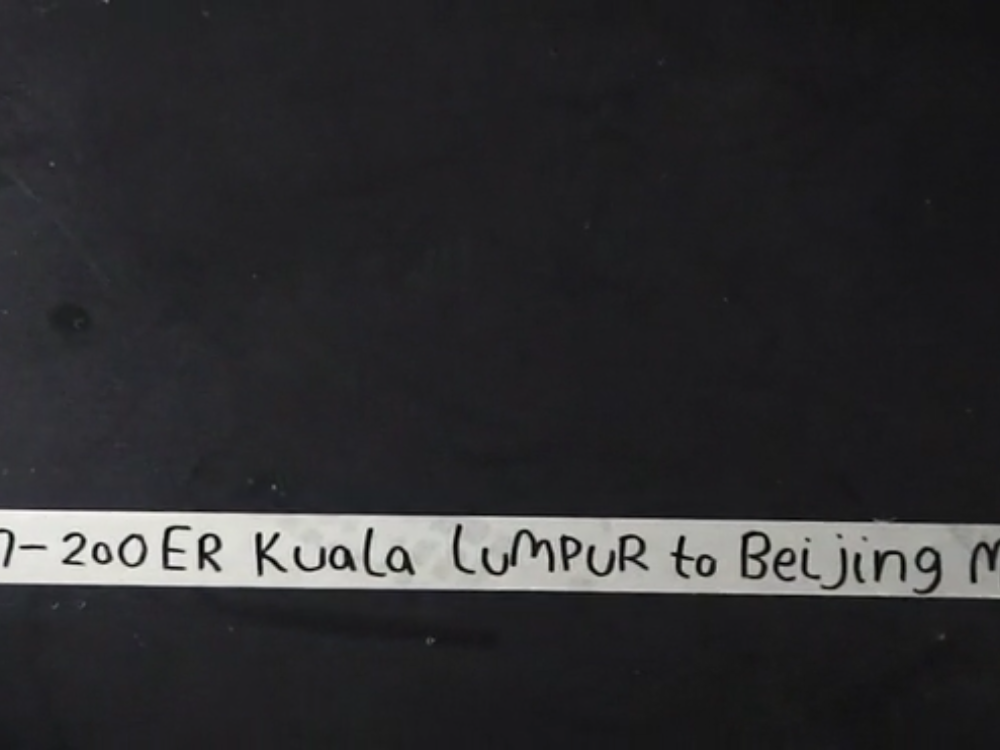 7-200ER Kuala LUMPUR to Beijing M